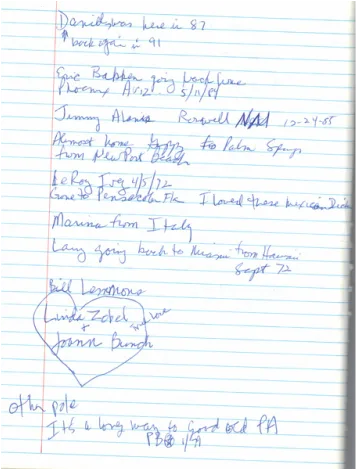 Daniels was here in 87
back again in 91
Eric going back home
Phoenix Ariz. 5/11/89
Jimmy Alanis Roswell NM 12-24-88
Almost home to Palm Springs
from NewPort Beach
LeRoy 4/5/72
Gone to Pensacola Fla I loved those Mexican
Marina from Italy
Larry going back to from Hawaii
Sept 72
Bill Lemmons
Linda with love
+
Joann Bunch
other pole
It's a long way to Good old PA